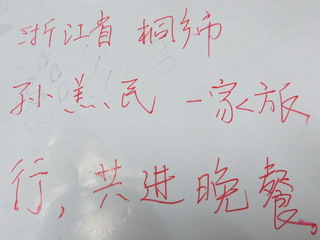 浙江省 桐乡市
孙羔民 一家旅
行，共进晚餐。